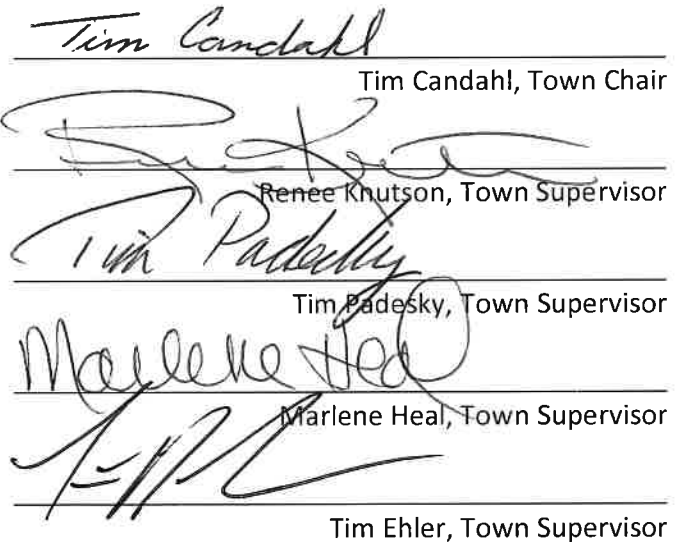 Tim Candahl
Tim Candahl, Town Chair
Renee Knutson, Town Supervisor
Tim Padesky
Tim Padesky, Town Supervisor
Marlene Heal
Marlene Heal, Town Supervisor
Tim Ehler, Town Supervisor